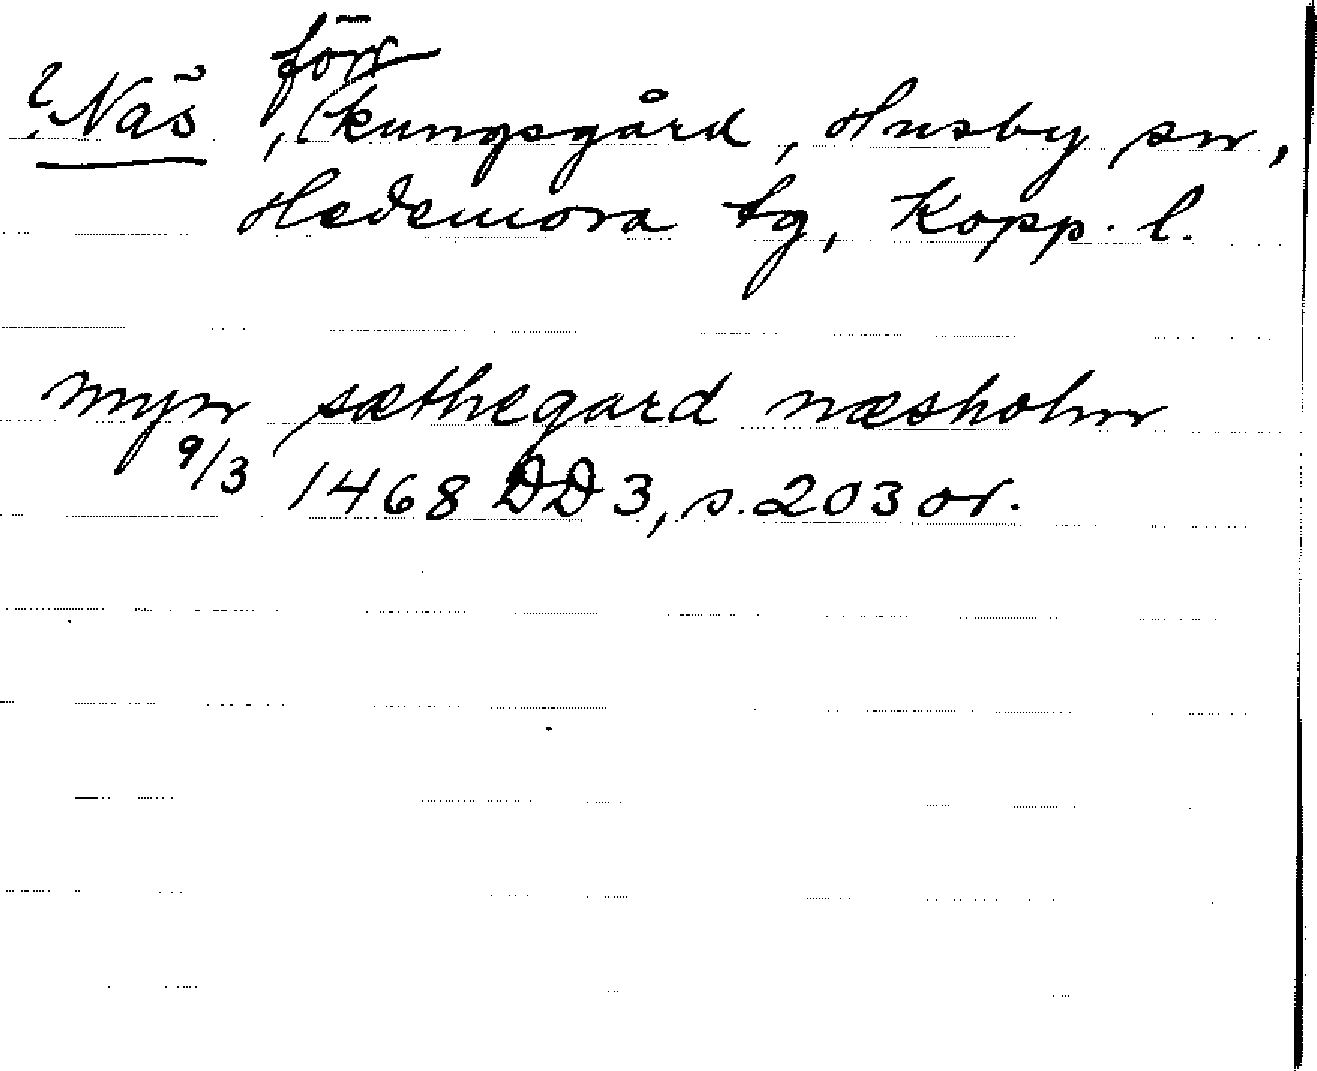 förr
? Näs, kungsgård, Husby sn,
Hedemora tg, Kopp. l.
myn sæthegard næsholm
9/3 1468 DD 3, s. 203 or.